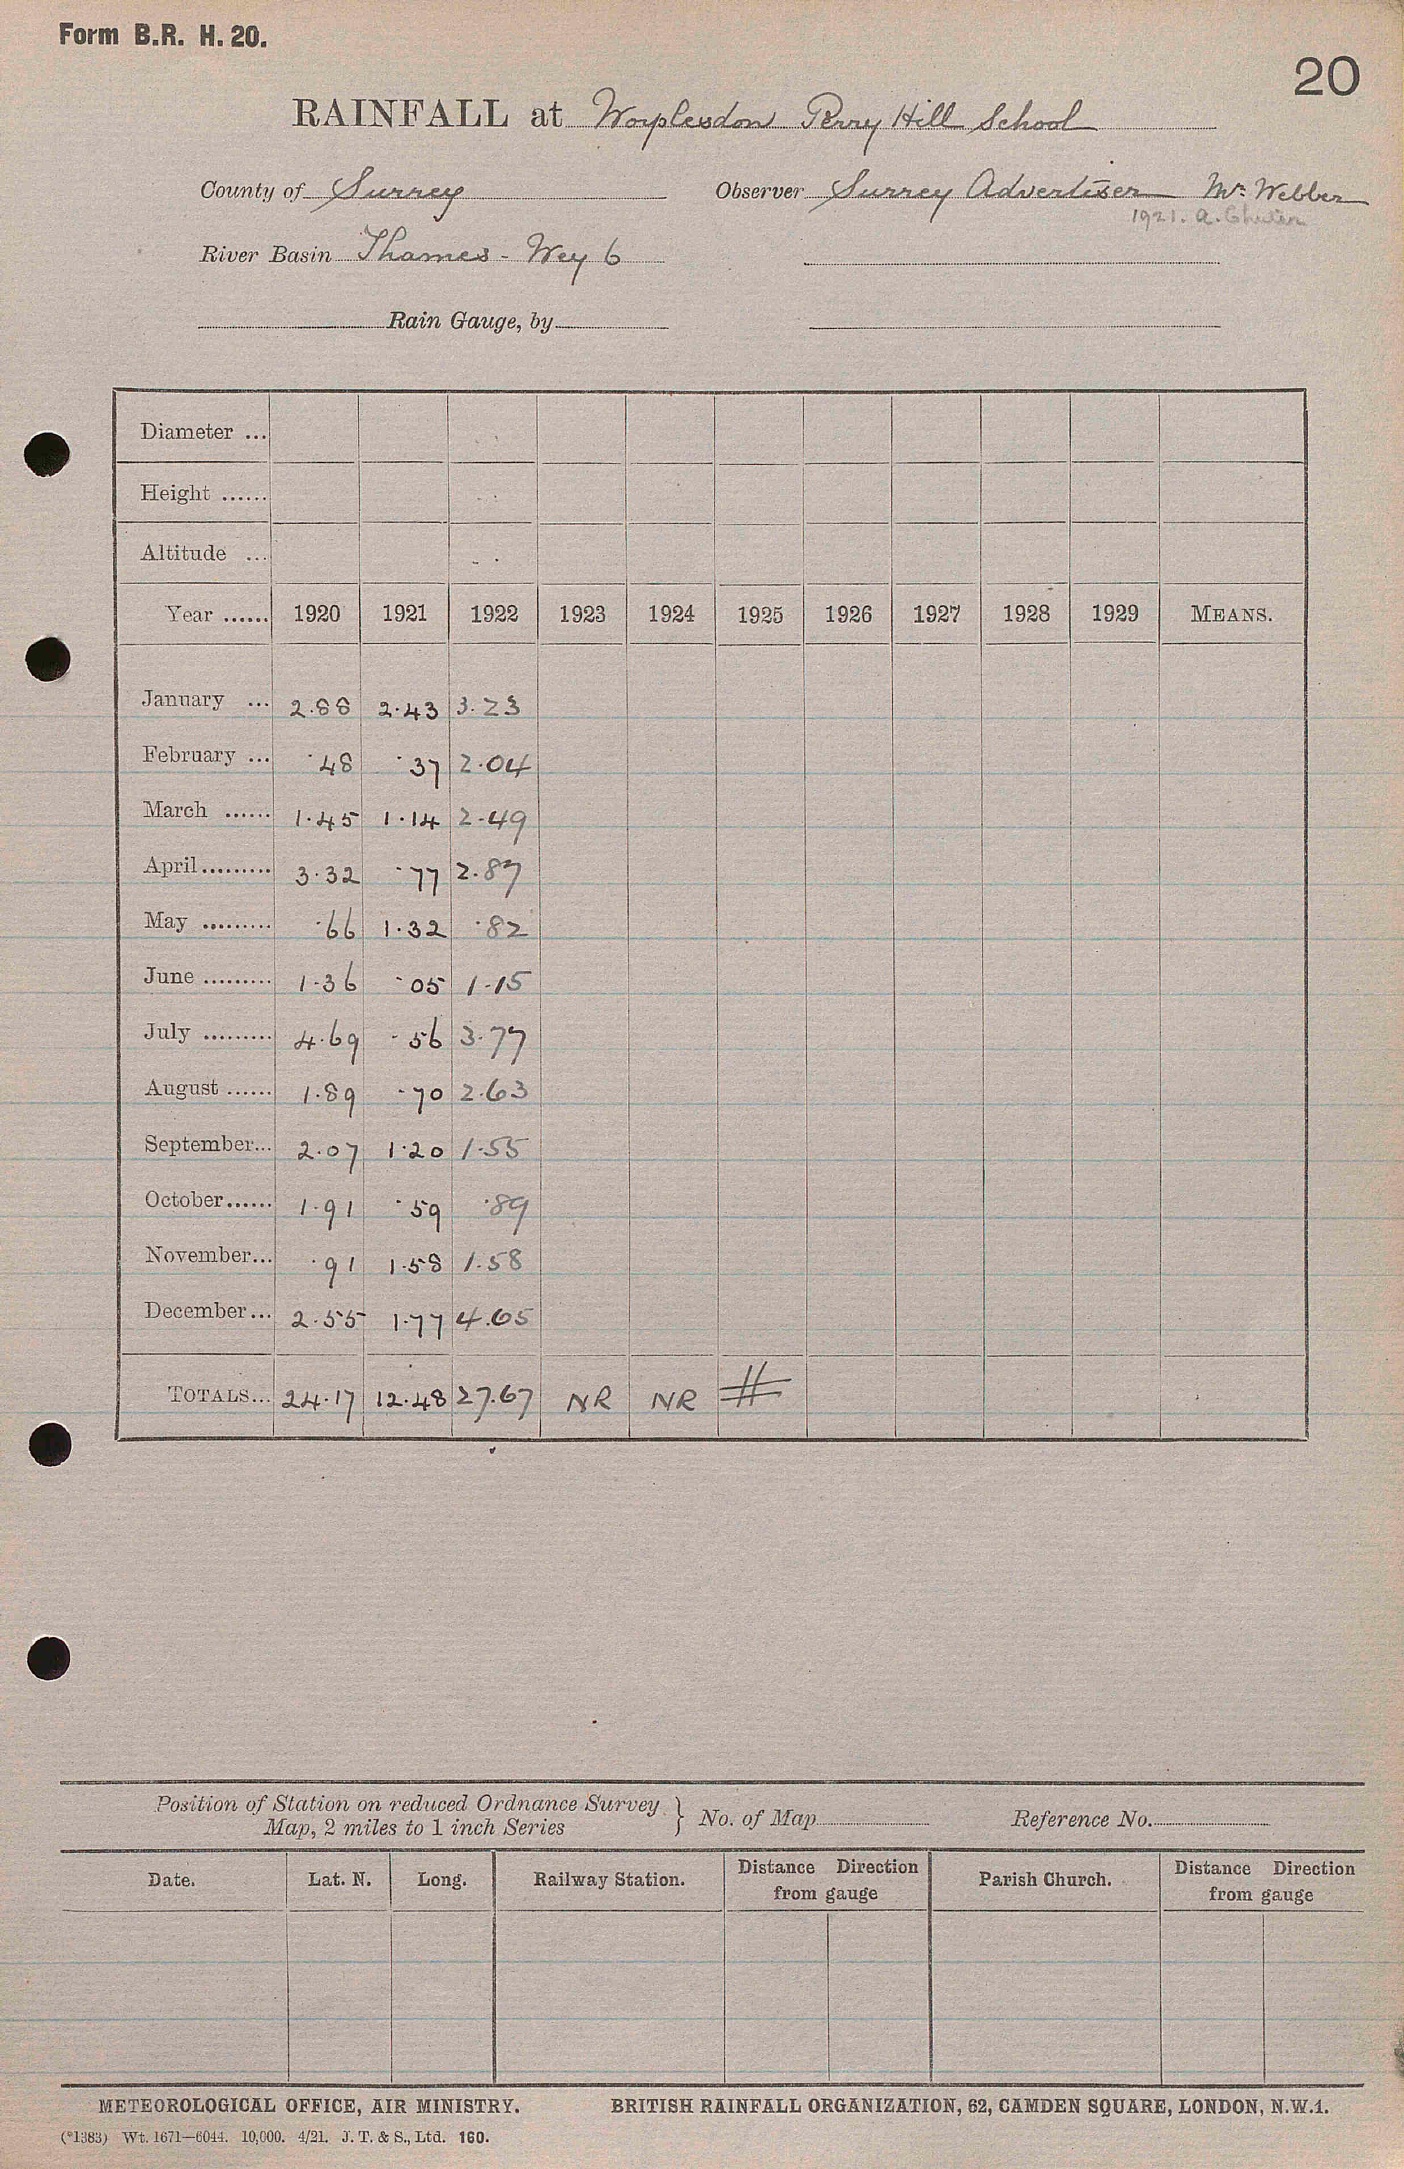 Form B.R. H. 20.
20
RAINFALL at Worplesdon Perry Hill School
County of Surrey Observer Surrey Advertiser Mr. Webber
1921. A.
River Basin Thames - Wey 6
Rain Gauge, by
Diameter ...
Height ......
Altitude ...
Year ...... 1920 1921 1922 1923 1924 1925 1926 1927 1928 1929 MEANS.
January ... 2.88 2.43 3.23
February ... .48 .37 2.04
March ...... 1.45 1.14 2.49
April ......... 3.32 .77 2.87
May ......... .66 1.32 .82
June ......... 1.36 .05 1.15
July ......... 4.69 .56 3.77
August ...... 1.89 .70 2.63
September... 2.07 1.20 1.55
October...... 1.91 .59 .89
November... .91 1.58 1.58
December... 2.55 1.77 4.65
TOTALS... 24.17 12.48 27.67 NR NR #
Position of Station on reduced Ordnance Survey
Map, 2 miles to 1 inch Series } No. of Map Reference No.
Date. Lat. N. Long. Railway Station. Distance Direction from gauge Parish Church. Distance Direction from gauge
METEOROLOGICAL OFFICE, AIR MINISTRY. BRITISH RAINFALL ORGANIZATION, 62, CAMDEN SQUARE, LONDON, N.W.1.
(*1383) Wt. 1671—6044. 10,000. 4/21. J. T. & S., Ltd. 160.